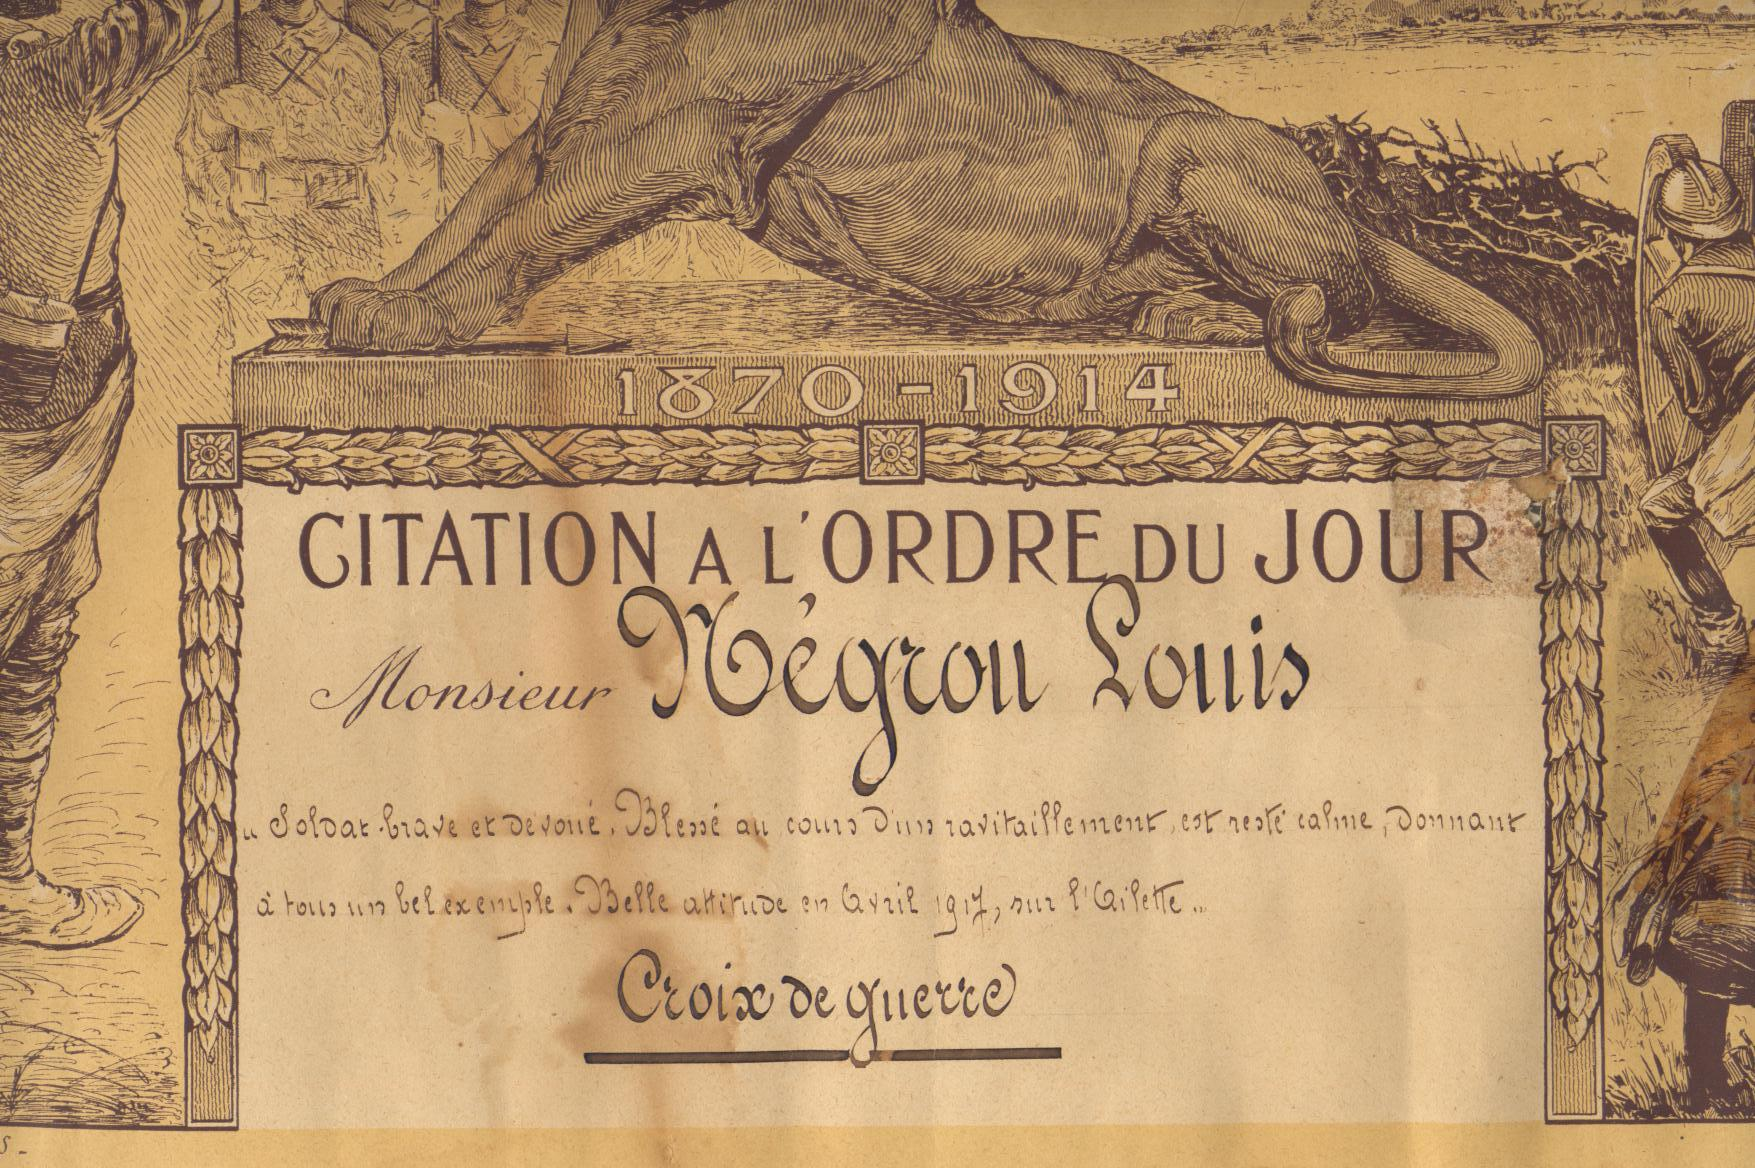 1870-1914
CITATION A L'ORDRE DU JOUR
Monsieur Négrou Louis
„ Soldat brave et dévoué. Blessé au cours d'un ravitaillement, est resté calme, donnant
à tous un bel exemple. Belle attitude en Avril 1917, sur l'Ailette „
Croix de guerre